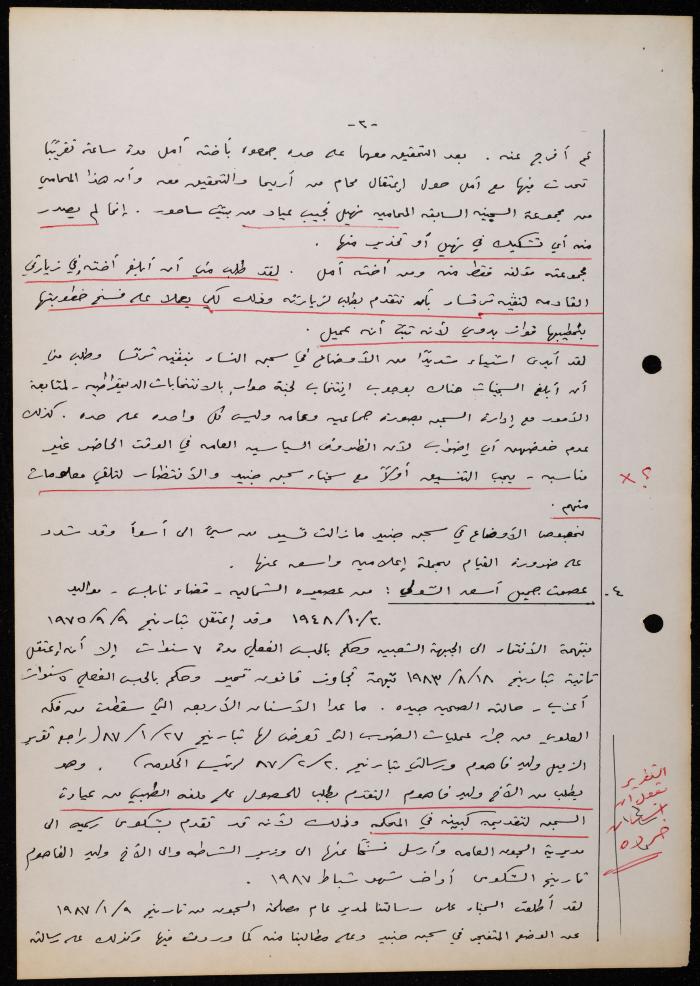 -٣-
ثم أفرج عنه . بعد التحقيق معهما على حده جمعوه بأخته أمل مدة ساعة تقريبًا
تحدث فيها مع أمل حول إعتقال محام من أريحا والتحقيق معه وأن هذا المحامي
من مجموعة السجينه السابقه المحاميه نهيل نجيب عياد من بيت ساحور . إنما لم يصدر
منه أي تشكيك في نهيل أو تحذير منها .
مجموعته مؤلفه فقط منه ومن أخته أمل . لقد طلب مني أن أبلغ أخته في زيارتي
القادمه لنفيه ترتسا بأن تتقدم بطلب لزيارته وذلك لكي يعملا على فسخ خطوبتها
بخطيبها فواز بدوي لأنه تبيّن أنه عميل .
لقد أبدى استياء شديدًا من الأوضاع في سجن النساء بنفيه ترتسا وطلب مني
أن أبلغ السجينات هناك بوجوب إنتخاب لجنة حوار بالانتخابات الديمقراطيه - لمتابعة
الأمور مع إدارة السجن بصورة جماعيه وعامه وليس كل واحده على حده . كذلك
عدم خوضهن أي إضراب لأن الظروف السياسيه العامه في الوقت الحاضر غير
مناسبه - يجب التنسيق أولاً مع سجناء سجن جنيد والأنتظار لتلقي معلومات
منهم .
؟ ×
بخصوص الأوضاع في سجن جنيد ما زالت تسير من سيئ الى أسوأ وقد شدد
على ضرورة القيام بحملة إعلاميه واسعه عنها .
٤- عصمت جميل أسعد الشولي : من عصيره الشماليه - قضاء نابلس - مواليد
٢٠/١٠/١٩٤٨ وقد إعتقل بتاريخ ٩/٩/١٩٧٥
بتهمة الأنتماء الى الجبهة الشعبيه وحكم بالحبس الفعلي مدة ٧ سنوات إلا أن إعتقل
ثانية بتاريخ ١٨/٨/١٩٨٣ بتهمة تجاوز قانون تمير وحكم بالحبس الفعلي ٥ سنوات
أعزب - حالته الصحيه جيده . ما عدا الأسنان الأربعه التي سقطت من فكه
العلوي من جراء عمليات الضرب التي تعرض لها بتاريخ ٢٧/١/٨٧ (راجع تقرير
الزميل وليد فاهوم ورسالتي بتاريخ ٢٠/٢/٨٧ لرئيس الحكومه) . وهو
يطلب من الأخ وليد فاهوم التقدم بطلب للحصول على ملفه الطبي من عيادة
السجن لتقديمه كبينه في المحكمه وذلك لأنه قد تقدم بشكوى رسميه الى
مديرية السجون العامه وأرسل نسخًا عنها الى وزير الشرطه والى الأخ وليد الفاهوم
تاريخ الشكوى أواخر شهر شباط ١٩٨٧ .
التقرير
تقول ان
لقد أطلعت السجناء على رسالتنا لمدير عام مصلحة السجون من تاريخ ٩/١/١٩٨٧
عن الوضع المتفجر في سجن جنيد وعلى مطالبنا منه كما وردت فيها وكذلك على رسالته